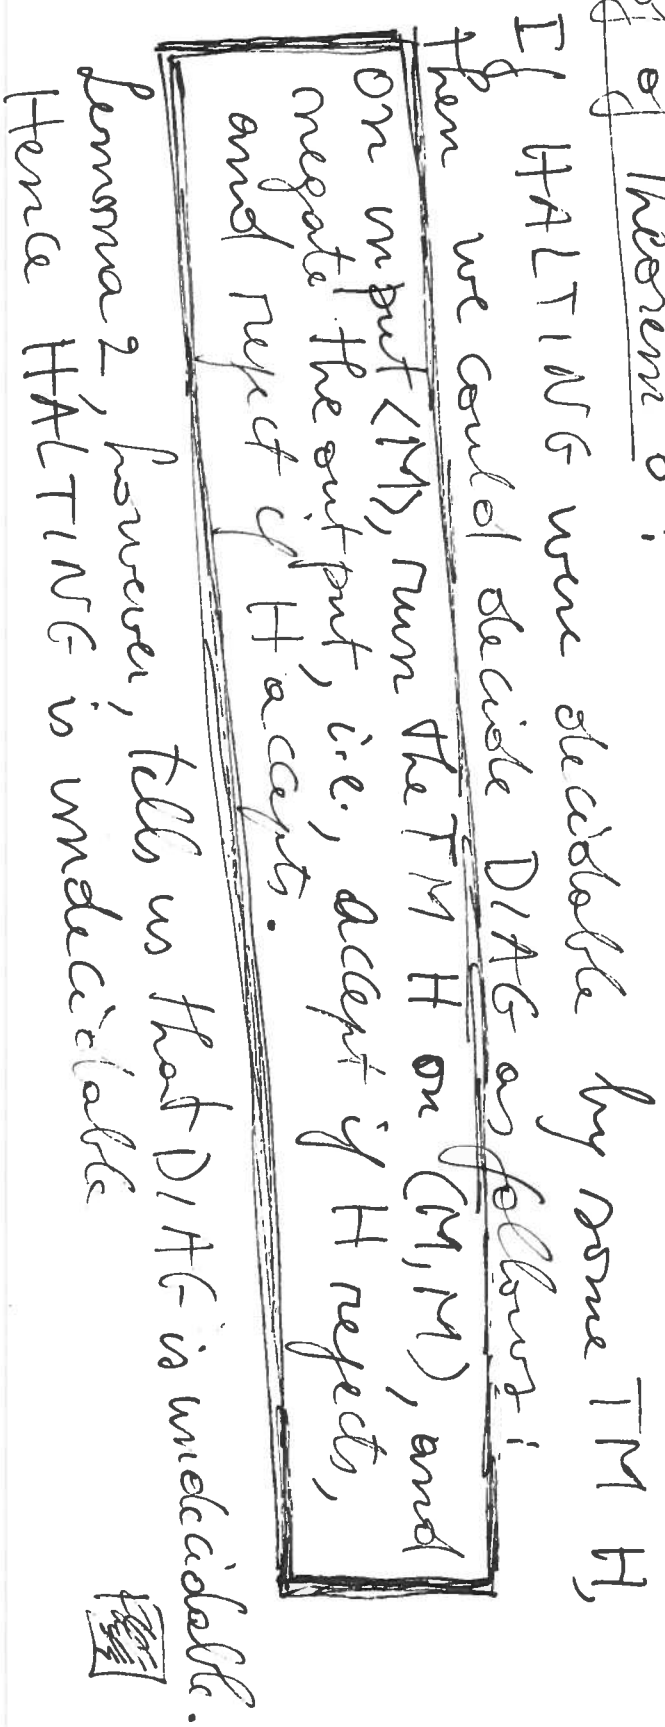 of Theorem 0:
If HALTING were decidable by some TM H,
then we could decide DIAG as follows:
on input <M>, run the TM H on (M, M), and
negate the output, i.e., accept if H rejects,
and reject if H accepts.
Lemma 2, however, tells us that DIAG is undecidable.
Hence HALTING is undecidable